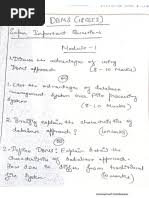 DBMS (18CS53)
Super Important Questions
Module-1
1. Discuss the advantages of using
DBMS approach? (8-10 Marks)
(OR)
1. List the advantages of database
management system over File Processing
System (8-10 Marks)
(OR)
1. Briefly explain the characteristics of
database approach. (10 Marks)
(OR)
2. Define DBMS? Explain details the
characteristics of database approach.
How can it differs from traditional
file system? (10 Marks)